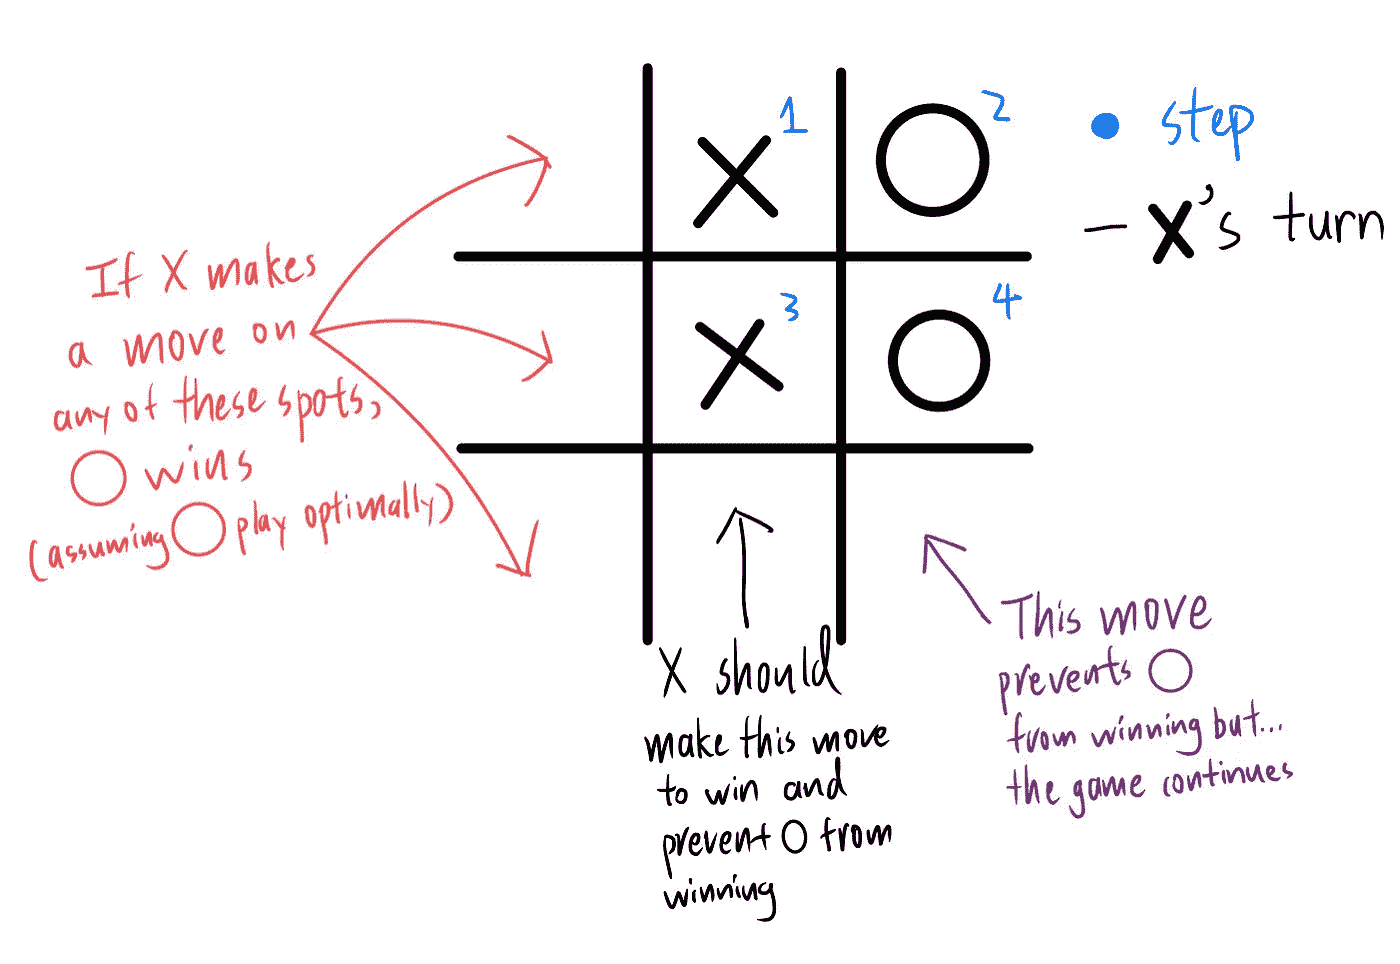 1
2
• step
– X's turn
3
4
If X makes
a move on
any of these spots,
O wins
(assuming O play optimally)
X should
make this move
to win and
prevent O from
winning
This move
prevents O
from winning but...
the game continues